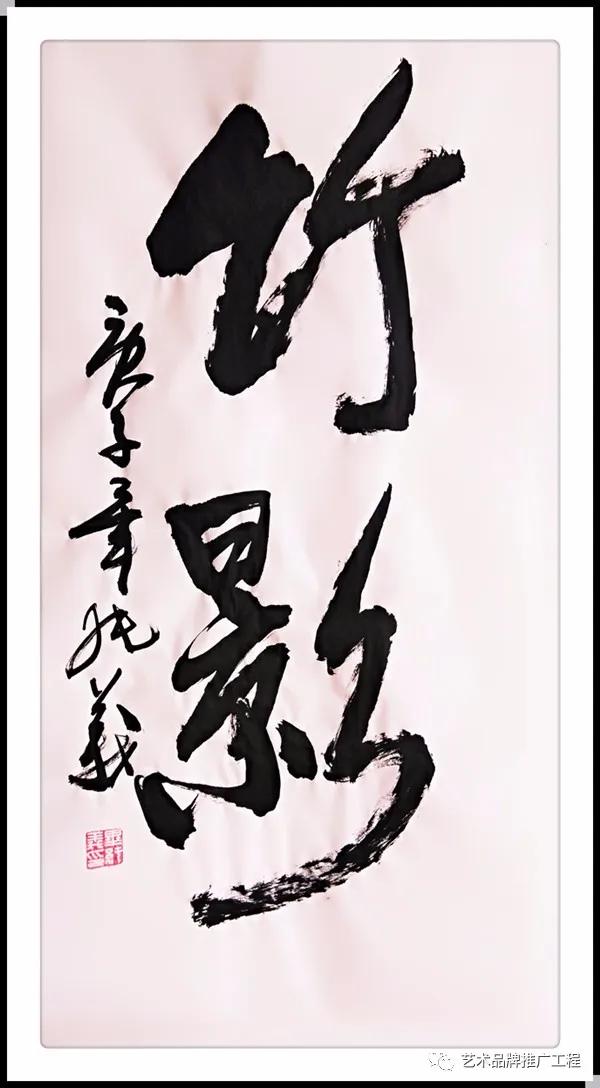 竹影
庚子年 义
艺术品牌推广工程